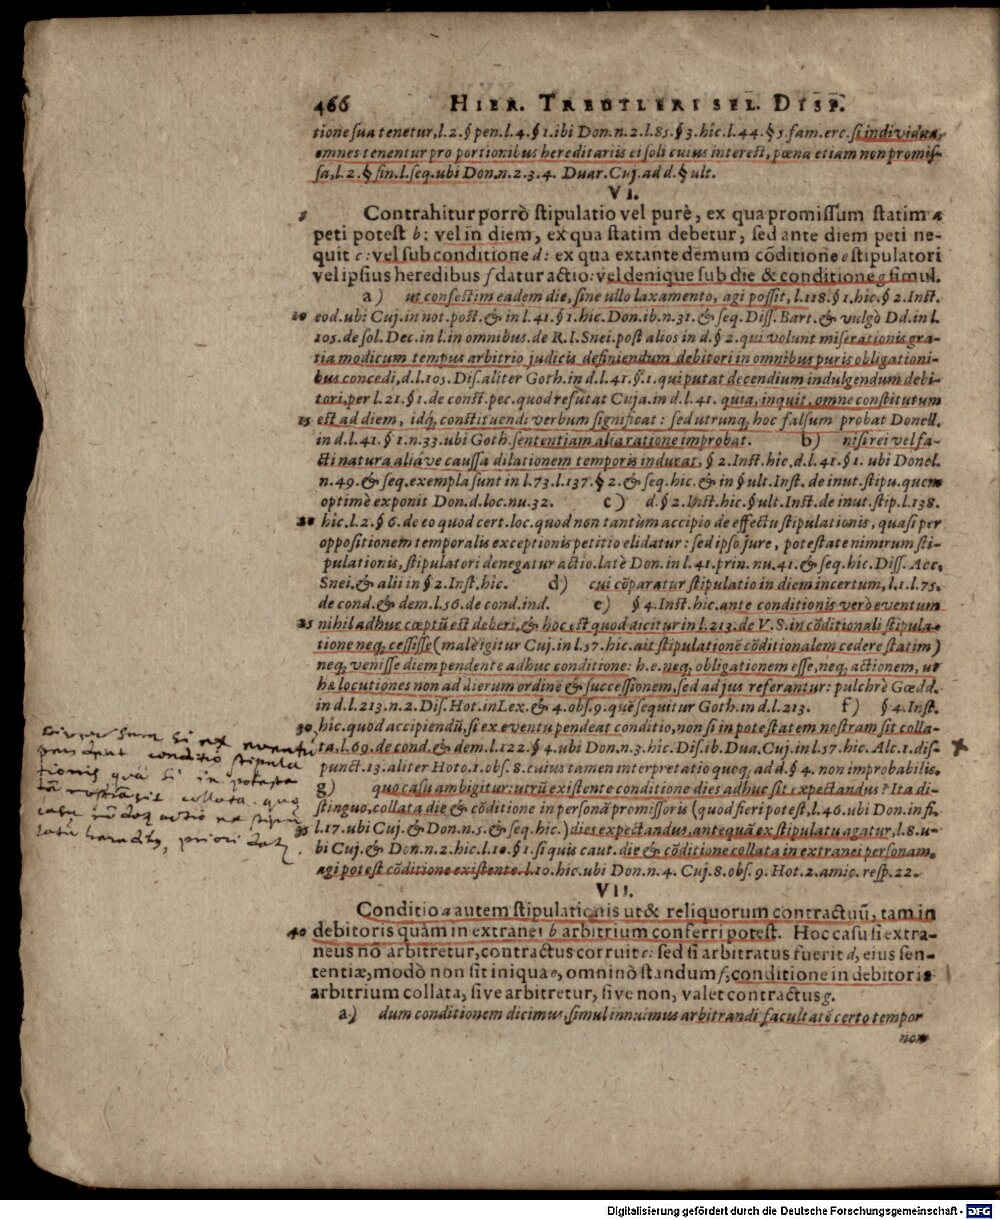 466 HIER. TREUTLERI SEL. DISP.
tione sua tenetur, l.2.§ pen.l.4.§ 1.ibi Don.n.2.l.85.§ 3.hîc.l.44.§ 5.fam.erc.si individua,
omnes tenentur pro portionibus hereditariis ei soli cuius interest, pœna etiam non promis-
sa, l.2.§ fin.l.seq.ubi Don.n.2.3.4. Duar.Cuj.ad d.§ ult.
VI.
5 Contrahitur porrò stipulatio vel purè, ex qua promissum statim a
peti potest b: vel in diem, ex qua statim debetur, sed ante diem peti ne-
quit c: vel sub conditione d: ex qua extante demum cōditione e stipulatori
vel ipsius heredibus f datur actio: vel denique sub die & conditione g simul.
a) ut confestim eadem die, sine ullo laxamento, agi possit, l.118.§ 1.hic.§ 2.Inst.
10 eod.ubi Cuj.in not.post.& in l.41.§ 1.hic.Don.ib.n.31.& seq.Diss.Bart.& vulgò Dd.in l.
105.de sol.Dec.in l.in omnibus.de R.I.Snei.post alios in d.§ 2.qui volunt miserationis gra-
tia modicum tempus arbitrio judicis definiendum debitori in omnibus puris obligationi-
bus concedi, d.l.105. Dis.aliter Goth.in d.l.41.§.1.qui putat decendium indulgendum debi-
tori, per l.21.§ 1.de const.pec.quod refutat Cuja.in d.l.41. quia, inquit, omne constitutum
15 est ad diem, idq; constituendi verbum significat: sed utrunq; hoc falsum probat Donell.
in d.l.41.§ 1.n.33.ubi Goth.sententiam alia ratione improbat. b) nisi rei vel fa-
cti natura aliáve caussa dilationem temporis indurat, § 2.Inst.hîc.d.l.41.§ 1. ubi Donel.
n.49.& seq.exempla sunt in l.73.l.137.§ 2.& seq.hic.& in § ult.Inst. de inut.stipu.quem
optimè exponit Don.d.loc.nu.32. c) d.§ 2.Inst.hic.§ ult.Inst.de inut.stip.l.138.
20 hîc.l.2.§ 6.de eo quod cert.loc.quod non tantùm accipio de effectu stipulationis, quasi per
oppositionem temporalis exceptionis petitio elidatur: sed ipso jure, potestate nimirum sti-
pulationis, stipulatori denegatur actio.latè Don.in l.41.prin.nu.41.& seq.hic.Diss. Acc.
Snei.& alii in § 2.Inst.hic. d) cui cōparatur stipulatio in diem incertum, l.1.l.75.
de cond.& dem.l.56.de cond.ind. e) § 4.Inst.hic.ante conditionis verò eventum
25 nihil adhuc cœptū est deberi, & hoc est quod dicitur in l.213.de V.S.in cōditionali stipula-
tione neq; cessisse (malè igitur Cuj.in l.57.hic.ait stipulationē cōditionalem cedere statim)
neq; venisse diem pendente adhuc conditione: h.e.neq; obligationem esse, neq; actionem, ut
hæ locutiones non ad dierum ordinē & successionem, sed ad jus referantur: pulchrè Gœdd.
in d.l.213.n.2.Dis.Hot.in Lex.& 4.obs.9.quē sequitur Goth.in d.l.213. f) § 4.Inst.
30 hîc.quod accipiendū, si ex eventu pendeat conditio, non si in potestatem nostram sit colla-
ta, l.69.de cond.& dem.l.122.§ 4.ubi Don.n.3.hic.Dis.ib.Dua.Cuj.in l.57.hic.Alc.1.dis-
punct.13.aliter Hoto.1.obs.8.cuius tamen interpretatio quoq; ad d.§ 4. non improbabilis.
g) quo casu ambigitur: utrū existente conditione dies adhuc sit expectandus? Ita di-
stinguo, collata die & cōditione in personā promissoris (quod fieri potest, l.46.ubi Don.in fi.
35 l.17.ubi Cuj.& Don.n.5.& seq.hic.) dies expectandus, antequā ex stipulatu agatur, l.8.u-
bi Cuj.& Don.n.2.hic.l.10.§ 1.si quis caut.die & cōditione collata in extranei personam,
agi potest cōditione existente.l.10.hic.ubi Don.n.4. Cuj.8.obs.9. Hot.2.amic.resp.22.
VII.
Conditio a autem stipulationis ut & reliquorum contractuū, tam in
40 debitoris quàm in extranei b arbitrium conferri potest. Hoc casu si extra-
neus nō arbitretur, contractus corruit c: sed si arbitratus fuerit d, eius sen-
tentiæ, modò non sit iniqua e, omninò standum f; conditione in debitoris
arbitrium collata, sive arbitretur, sive non, valet contractus g.
a) dum conditionem dicimus, simul innuimus arbitrandi facultatē certo tempor
non
si ex eventu
pendeat conditio stipula
tionis quā si in potesta
tē nostrā sit collata
Digitalisierung gefördert durch die Deutsche Forschungsgemeinschaft - DFG